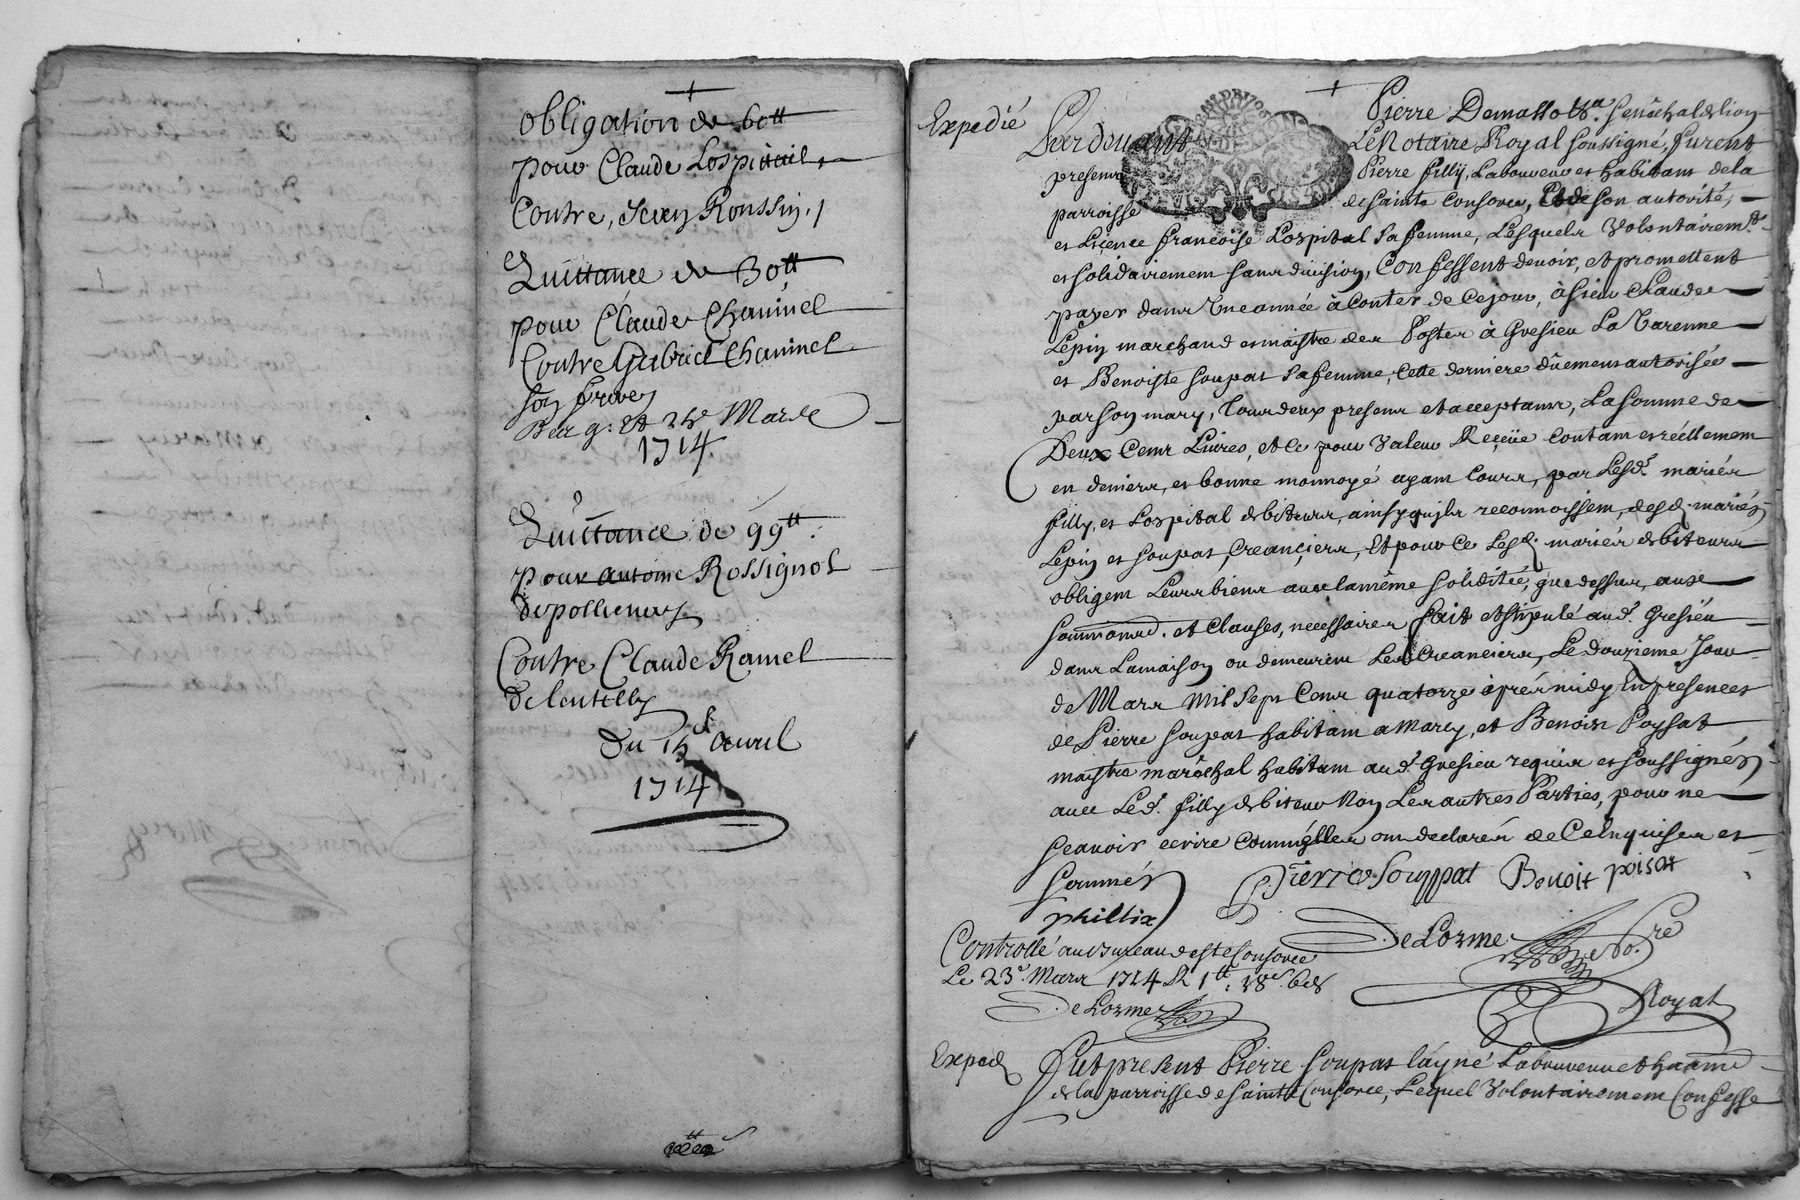 obligation de 60tt
pour Claude Lospitail
Contre, Jean Roussin,/
Quittance de 30tt
pour Claude Chaninel
Contre Gabriel Chaninel
son frere
Mars
1714
Quittance de 99tt
pour antoine Rossignol
de pollienay
Contre Claude Ramel
de lentilly
du 15e avril
1714
Expedié
Pardevant
Pierre Senechal de lion
Le Notaire Royal soussigné, furent
presens
Pierre filly, Laboureur et habitant de la
parroisse
de sainte Consorce, Et de son autorité,
et Licence francoise Lospital sa femme, Lesquels Volontairemt
et solidairement sans division, Confessent devoir, et promettent
payer dans Une année à Conter de Ce jour, à sieur Claude
Lepin marchand et maistre des Postes à Gresieu La Varenne
et Benoiste soupat sa femme, Cette derniere düement autorisée
par son mary, Tous deux presens et acceptans, La somme de
Deux Cens Livres, et Ce pour Valeur Reçüe Contant et réellement
en deniers, et bonne monnoyé ayant Cours, par Lesd. mariés
filly, et Lospital debiteurs, ainsy qu'ils reconnoissent, desd. mariés
Lepin et soupat Creanciers, Et pour Ce Lesd. mariés debiteurs
obligent Leurs biens avec la même solidité, que dessus, aux
et Clauses, necessaires fait et stipulé aud. Gresieu
dans La maison ou demeurent Les Creanciers, Le douzieme Jour
de Mars Mil Sept Cens quatorze aprés midy En presences
de Pierre soupat habitant a Marcy, et Benoist Poysat
maistre maréchal habitant aud. Gresieu requis et soussignés
avec Led. filly debiteur Non Les autres Parties, pour ne
sçavoir ecrire Comm'elles ont declarés de Ce Enquises et
sommés
Pierre Souppat Benoit poisat
phillix
De Lorme No.re
Royal
Controllé au Bureau de Ste Consorce
Le 23e Mars 1714 R 1tt
De Lorme
Exped.
fut present Pierre soupat l'ayné Laboureur et
de la parroisse de Sainte Consorce, Lequel Volontairement Confesse